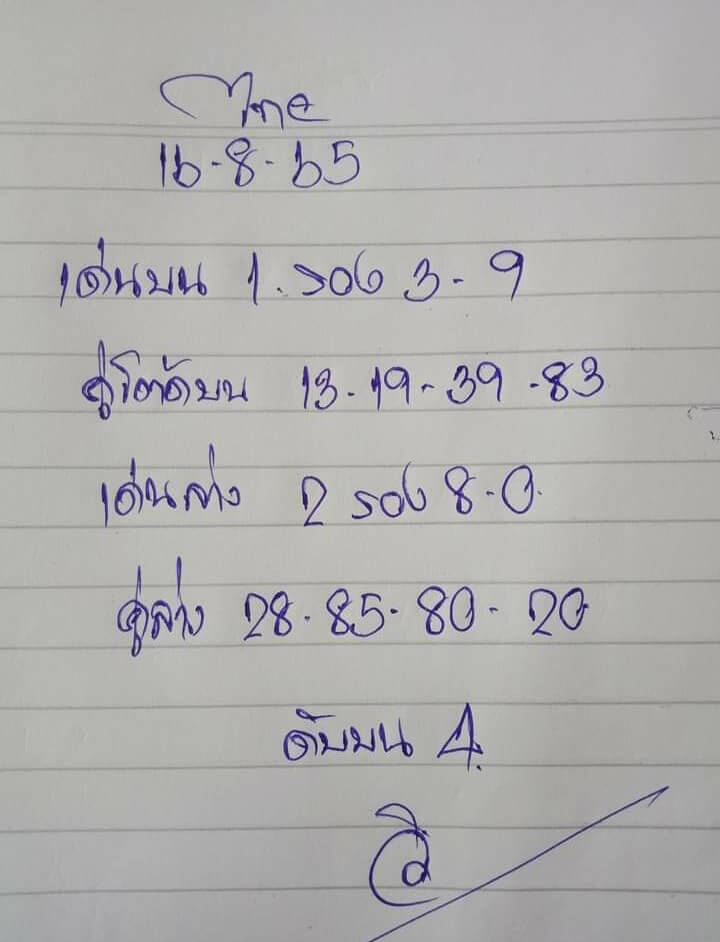 ไทย
16-8-65
เด่นบน 1. รอง 3-9
คู่โต๊ดบน 13-19-39-83
เด่นล่าง 2 รอง 8-0
คู่ล่าง 28-85-80-20
ดับบน 4.